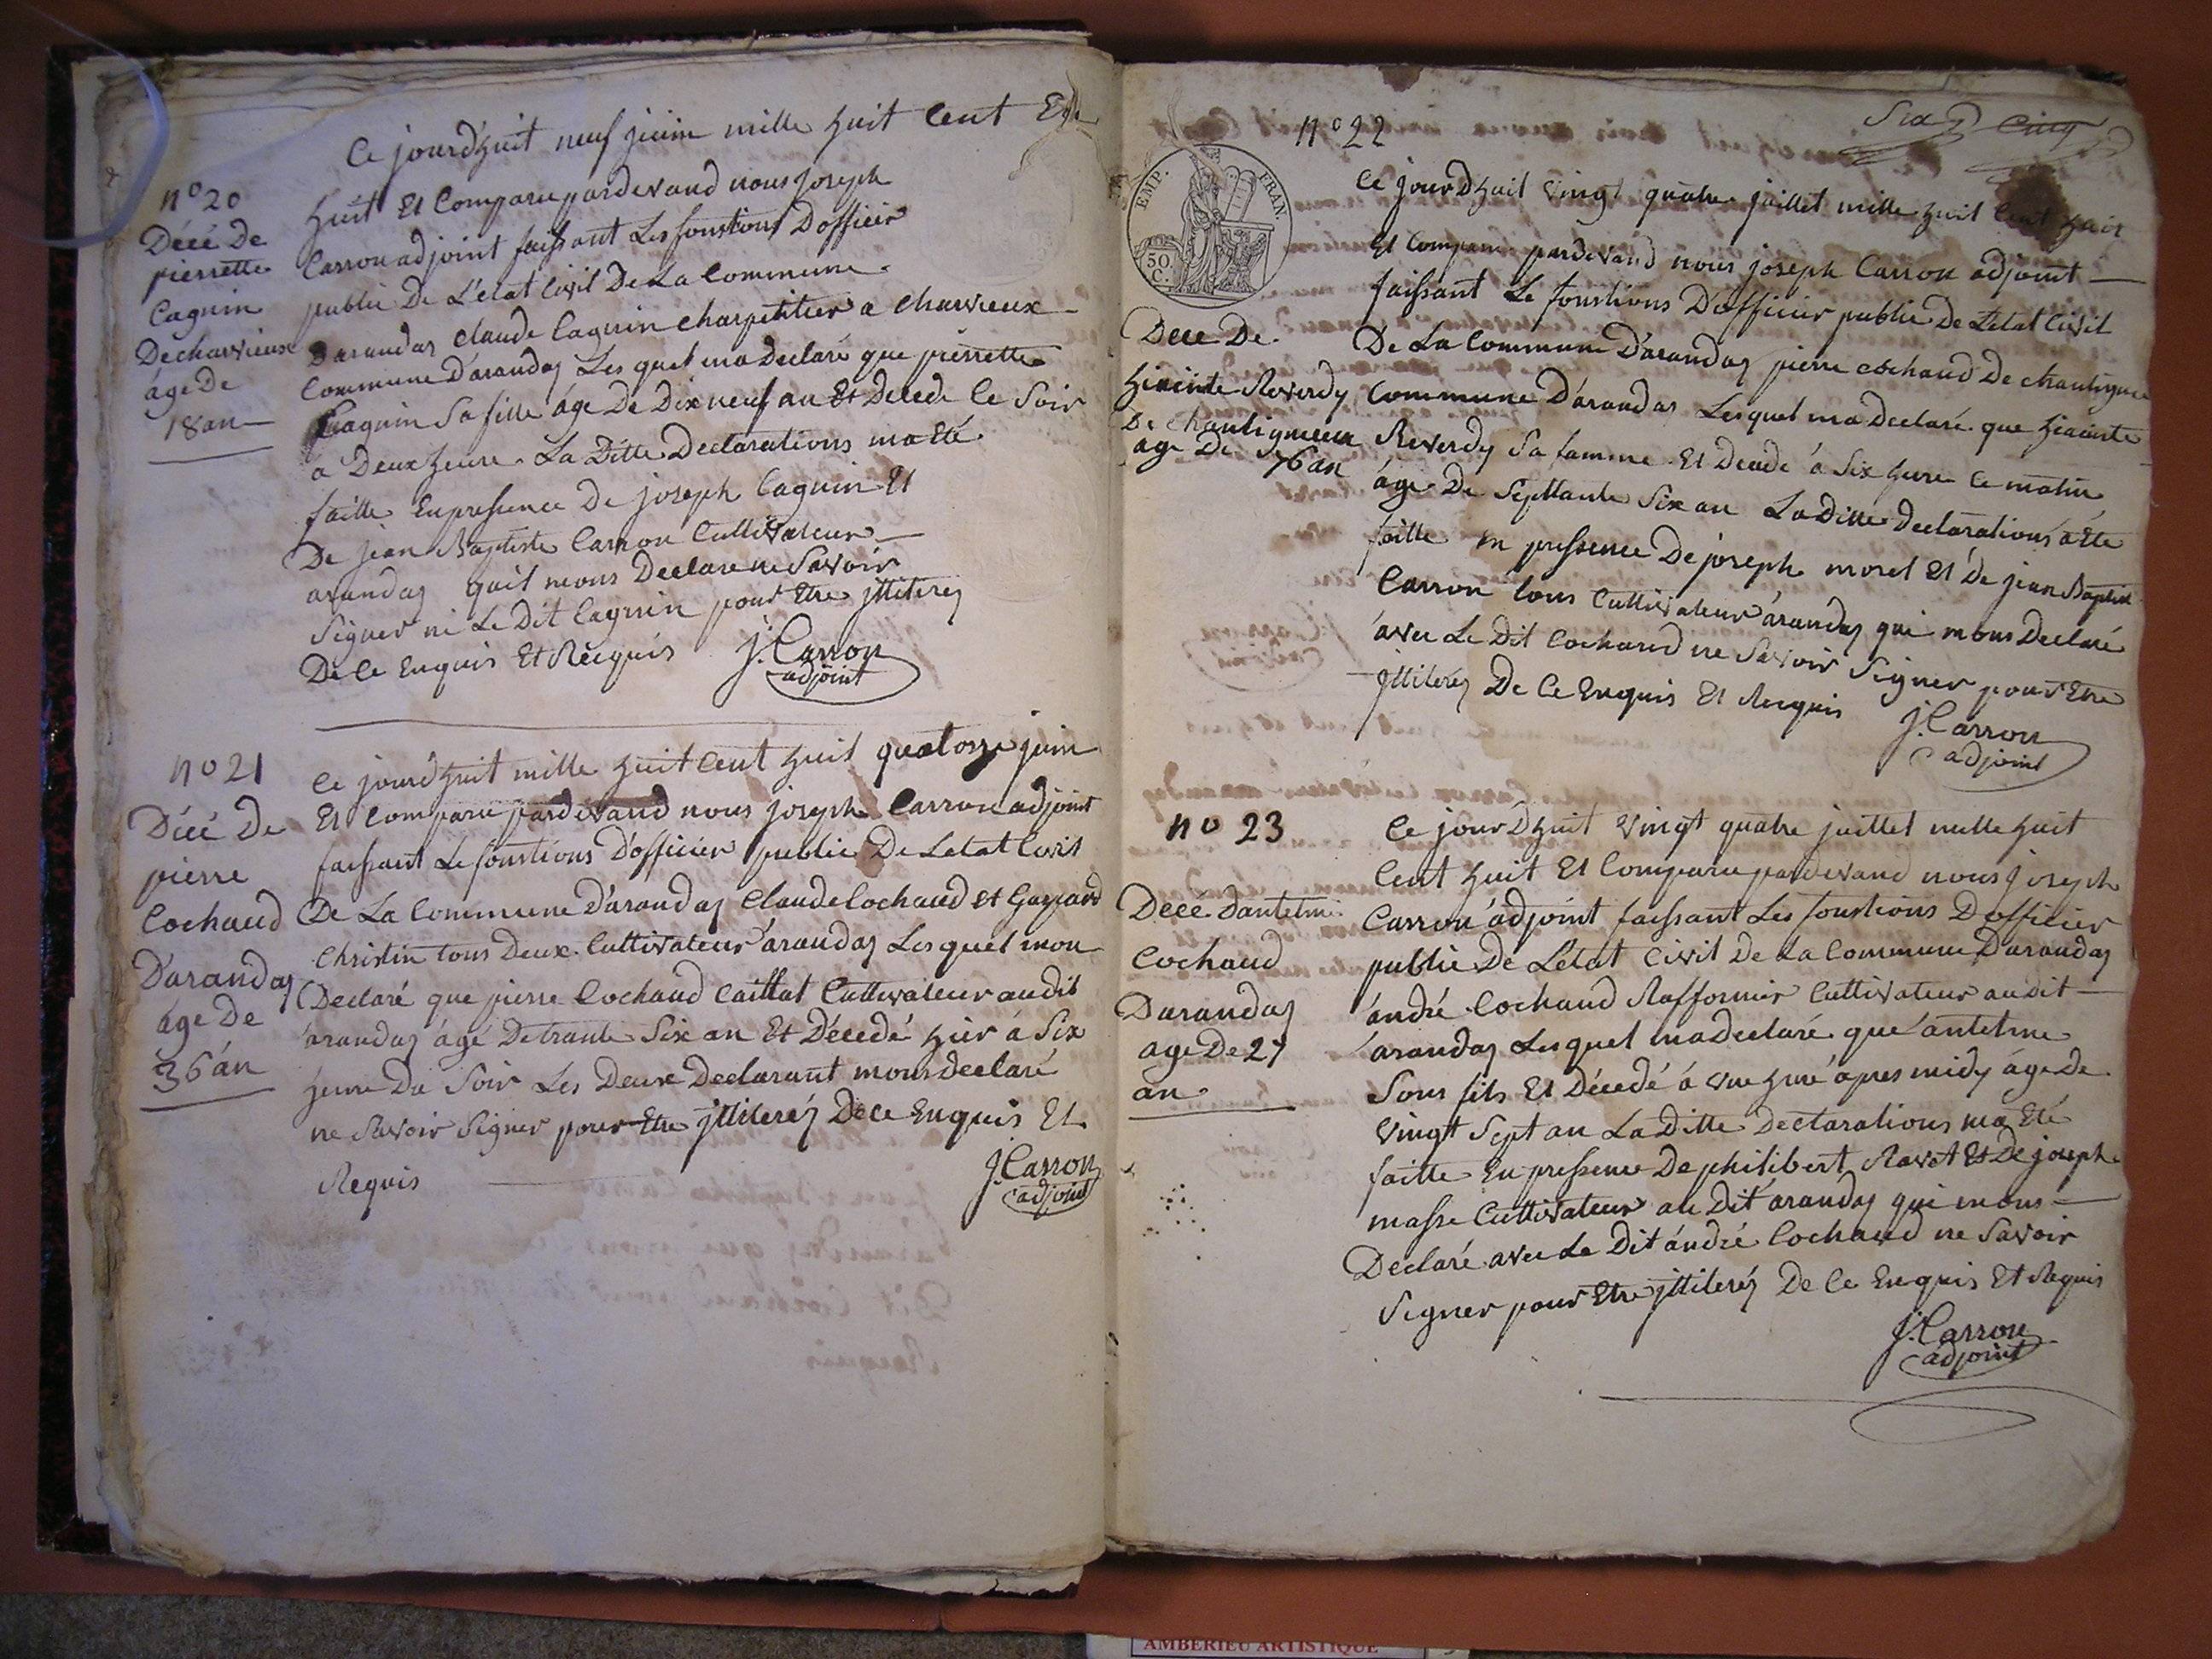 ce jourd'huit neuf juin mille huit cent
n° 20
Décé De
pierrette
Caguin
De charvieux
age De
18 an
huit Et Comparu pardevand nous joseph
Carron adjoint faissant Les fonstions D'officier
public De L'état Civil De La Commune
Darandas claude Caguin charpentier a charvieux
Commune D'arandas Les quel ma Declaré que pierrette
Caguin Sa fille áge De Dix neuf an Et Decede Ce Soir
a Deux heure La Ditte Declarations ma Eté
faitte En pressence De joseph Caguin Et
De jean Baptiste Carron Cultivateur
arandas quil mons Declare ne Savoir
Signer ni Le Dit Caguin pour Etre jlliterés
De Ce Enquis Et Requis
J. Carron
adjoint
n° 21
Décé De
pierre
Cochaud
D'arandas
áge De
36 án
Ce jourd'huit mille huit cent huit quatorze juin
Et Comparu pardevand nous joseph Carron adjoint
faissant Le fonstions D'officier public De Letat Civil
De La Commune D'arandas Claude Cochaud Et Gaspard
Christin tous Deux Cultivateur arandas Les quel mon
Declaré que pierre Cochaud Caillat Cultivateur audit
arandas ágé De trante Six an Et Décedé hier á Six
heure Du Soir Les Deux Declarant mons declaré
ne Savoir Signer pour Etre jlliterés De Ce Enquis Et
Requis
J. Carron
adjoint
Six Cinq
n° 22
EMP. FRAN.
50 C.
Ce jourd'huit vingt quatre juillet mille huit Cent huit
Et Comparu pardevand nous joseph Carron adjoint
faissant Le fonstions D'officier public De Letat Civil
Dece De
hiacinte Reverdy
De chantigneux
age De 76 an
De La Commune D'arandas pierre cochaud De
Commune D'arandas Lesquel ma Declaré que hiacinte
Reverdy Sa famme Et Decede á Six hure Ce matin
áge De Septtante Six an La Ditte declarations á Ete
faitte en pressence De joseph morel Et De jean Baptist
Carron tous Cultivateur arandas qui mons Declaré
avec Le Dit Cochaud ne Savoir Signer pour Etre
jlliterés De Ce Enquis Et Requis
J. Carron
adjoint
n° 23
Decé D'antelme
Cochaud
Darandas
age De 27
an
Ce jourd'huit vingt quatre juillet mille huit
Cent huit Et Comparu pardevand nous joseph
Carron adjoint faissant Les fonstions D'officier
public De L'etat Civil De La Commune Darandas
ándré Cochaud Cultivateur audit
arandas Lesquel ma declaré que antelme
Sons fils Et Décedé á vne huré apres midy áge De
vingt Sept an La Ditte Declarations ma Eté
faitte En pressence De philibert Ravet Et De joseph
masse Cultivateur au Dit arandas qui mons
Declaré avec Le Dit ándré Cochaud ne Savoir
Signer pour Etre jlliterés De Ce Enquis Et Requis
J. Carron
adjoint
AMBERIEU ARTISTIQUE